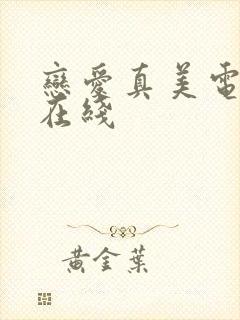 戀愛真美電
在綫
黃金葉